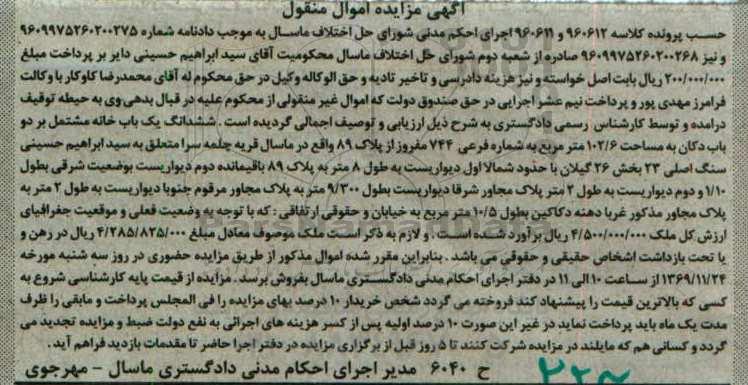 آگهی مزایده اموال منقول
حسب پرونده کلاسه ۹۶۰۶۱۲ و ۹۶۰۶۱۱ اجرای احکم مدنی شورای حل اختلاف ماسال به موجب دادنامه شماره ۹۶۰۹۹۷۵۲۶۰۲۰۰۲۷۵
و نیز ۹۶۰۹۹۷۵۲۶۰۲۰۰۲۶۸ صادره از شعبه دوم شورای حل اختلاف ماسال محکومیت آقای سید ابراهیم حسینی دایر بر پرداخت مبلغ
۲۰۰/۰۰۰/۰۰۰ ریال بابت اصل خواسته و نیز هزینه دادرسی و تاخیر تادیه و حق الوکاله وکیل در حق محکوم له آقای محمدرضا کاوکار با وکالت
فرامرز مهدی پور و پرداخت نیم عشر اجرایی در حق صندوق دولت که اموال غیر منقولی از محکوم علیه در قبال بدهی وی به حیطه توقیف
درامده و توسط کارشناس رسمی دادگستری به شرح ذیل ارزیابی و توصیف اجمالی گردیده است . ششدانگ یک باب خانه مشتمل بر دو
باب دکان به مساحت ۱۰۲/۶ متر مربع به شماره فرعی ۷۴۴ مفروز از پلاک ۸۹ واقع در ماسال قریه چلمه سرا متعلق به سید ابراهیم حسینی
سنگ اصلی ۲۳ بخش ۲۶ گیلان با حدود شمالا اول دیواریست به طول ۸ متر به پلاک ۸۹ باقیمانده دوم دیواریست بوضعیت شرقی بطول
۱/۱۰ و دوم دیواریست به طول ۲ متر پلاک مجاور شرقا دیواریست بطول ۹/۳۰۰ متر به پلاک مجاور مرقوم جنوبا دیواریست به طول ۲ متر به
پلاک مجاور مذکور غربا دهنه دکاکین بطول ۱۰/۵ متر مربع به خیابان و حقوقی ارتفاقی : که با توجه به وضعیت فعلی و موقعیت جغرافیای
ارزش کل ملک ۴/۵۰۰/۰۰۰/۰۰۰ ریال برآورد شده است . و لازم به ذکر است ملک موصوف معادل مبلغ ۴/۲۸۵/۸۲۵/۰۰۰ ریال در رهن و
یا تحت بازداشت اشخاص حقیقی و حقوقی می باشد . بنابراین مقرر شده اموال مذکور از طریق مزایده حضوری در روز سه شنبه مورخه
۱۳۶۹/۱۱/۲۴ از ساعت ۱۰ الی ۱۱ در دفتر اجرای احکام مدنی دادگستری ماسال بفروش برسد . مزایده از قیمت پایه کارشناسی شروع به
کسی که بالاترین قیمت را پیشنهاد کند فروخته می گردد شخص خریدار ۱۰ درصد بهای مزایده را فی المجلس پرداخت و مابقی را ظرف
مدت یک ماه باید پرداخت نماید در غیر این صورت ۱۰ درصد اولیه پس از کسر هزینه های اجرائی به نفع دولت ضبط و مزایده تجدید می
گردد و کسانی هم که مایلند در مزایده شرکت کنند تا ۵ روز قبل از برگزاری مزایده در دفتر اجرا حاضر تا مقدمات بازدید فراهم آید .
ح ۶۰۴۰ مدیر اجرای احکام مدنی دادگستری ماسال - مهرجوی